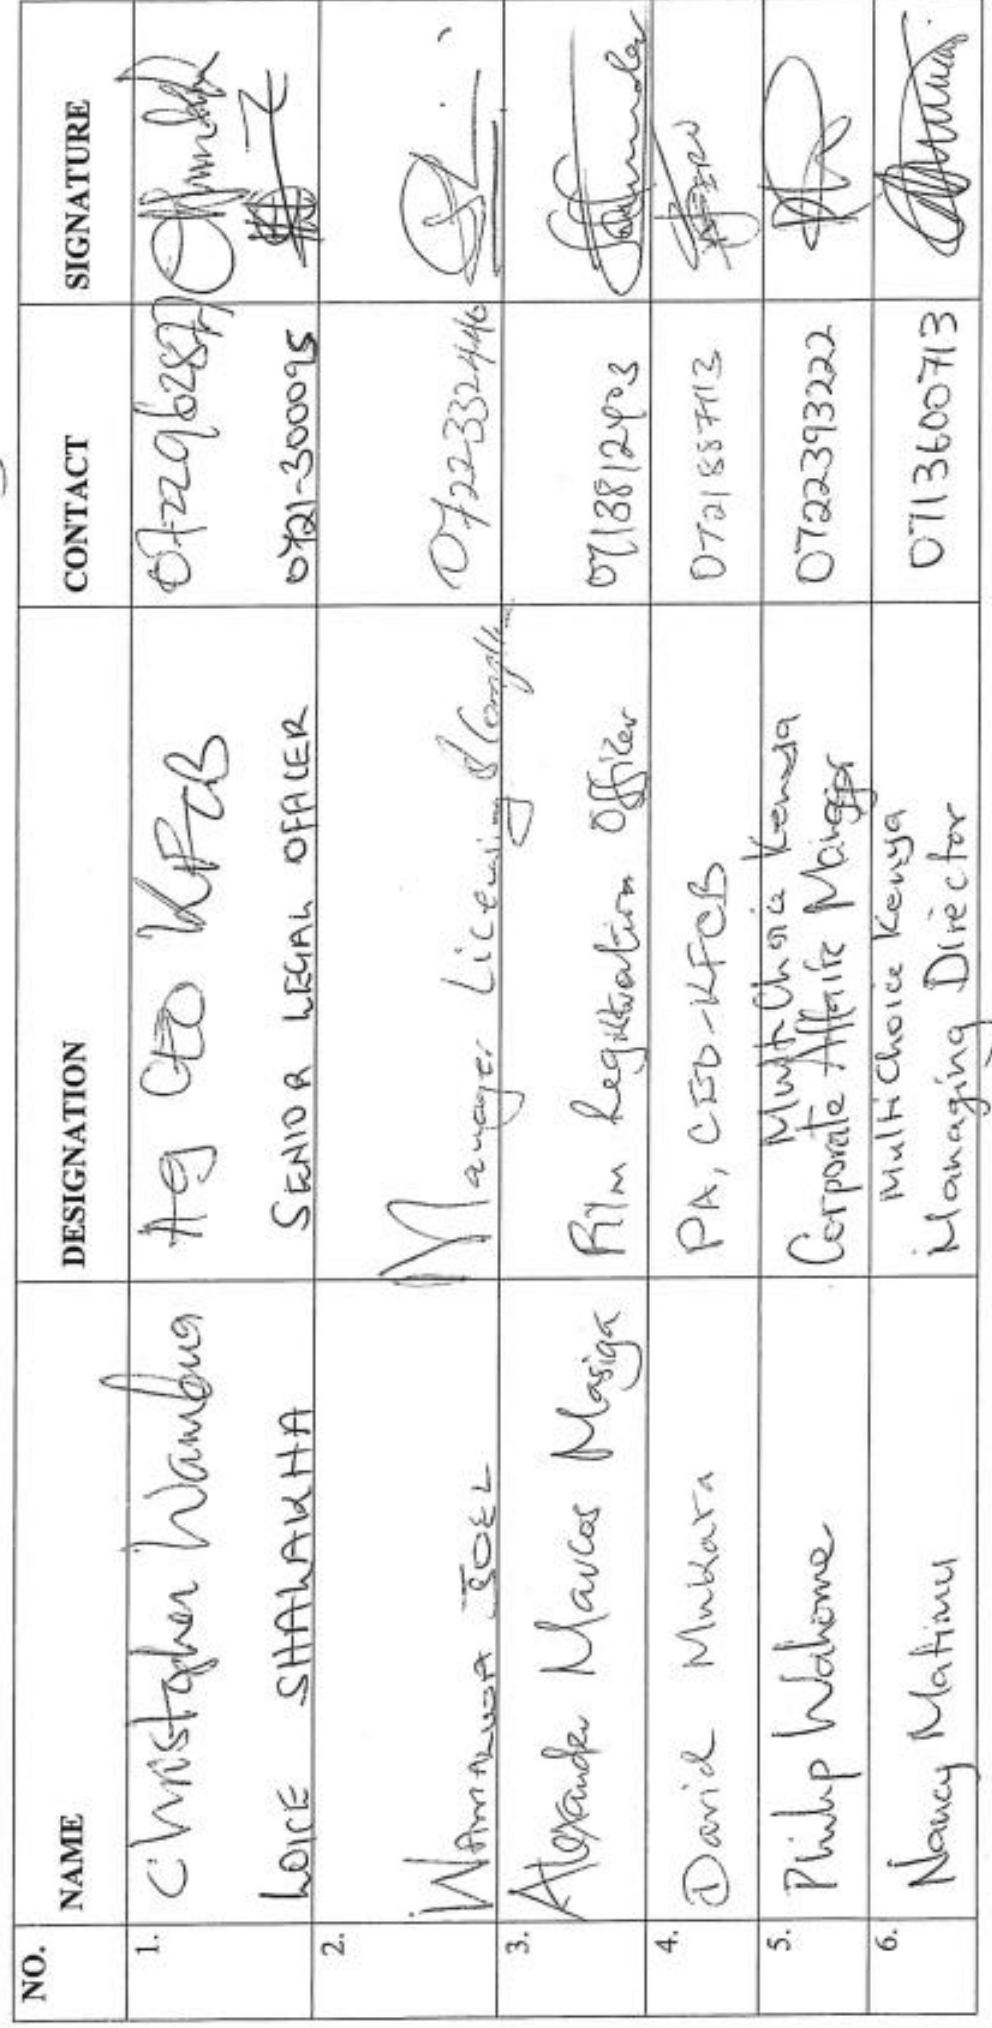 NO. NAME DESIGNATION CONTACT SIGNATURE
1. Christopher Wambua Ag CEO KFCB 0722962877
LOICE SHALAKHA SENIOR LEGAL OFFICER 0721-300095
2. WAMALWA JOEL Manager Licensing & 0722332446
3. Alexander Marcas Masiga Film Registration Officer 0713812403
4. David Mukara PA, CEO-KFCB 0721887713
5. Philip Wahome MultiChoice Kenya 0722393222
Corporate Affairs Manager
6. Nancy Matimu Multichoice Kenya 0713600713
Managing Director